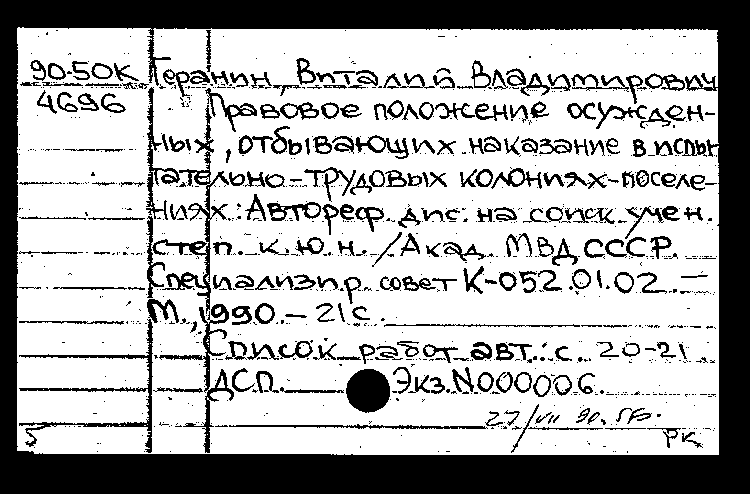 90-50К Геранин, Виталий Владимирович
4696 Правовое положение осужден-
ных, отбывающих наказание в испы
тательно-трудовых колониях-поселе-
ниях: Автореф. дис. на соиск. учен.
степ. к.ю.н. / Акад. МВД СССР.
Специализир. совет К-052.01.02. —
М., 1990. — 21 с.
Список работ авт.: с. 20-21.
ДСП. Экз. N000006.
27/VII 90.
5 РК